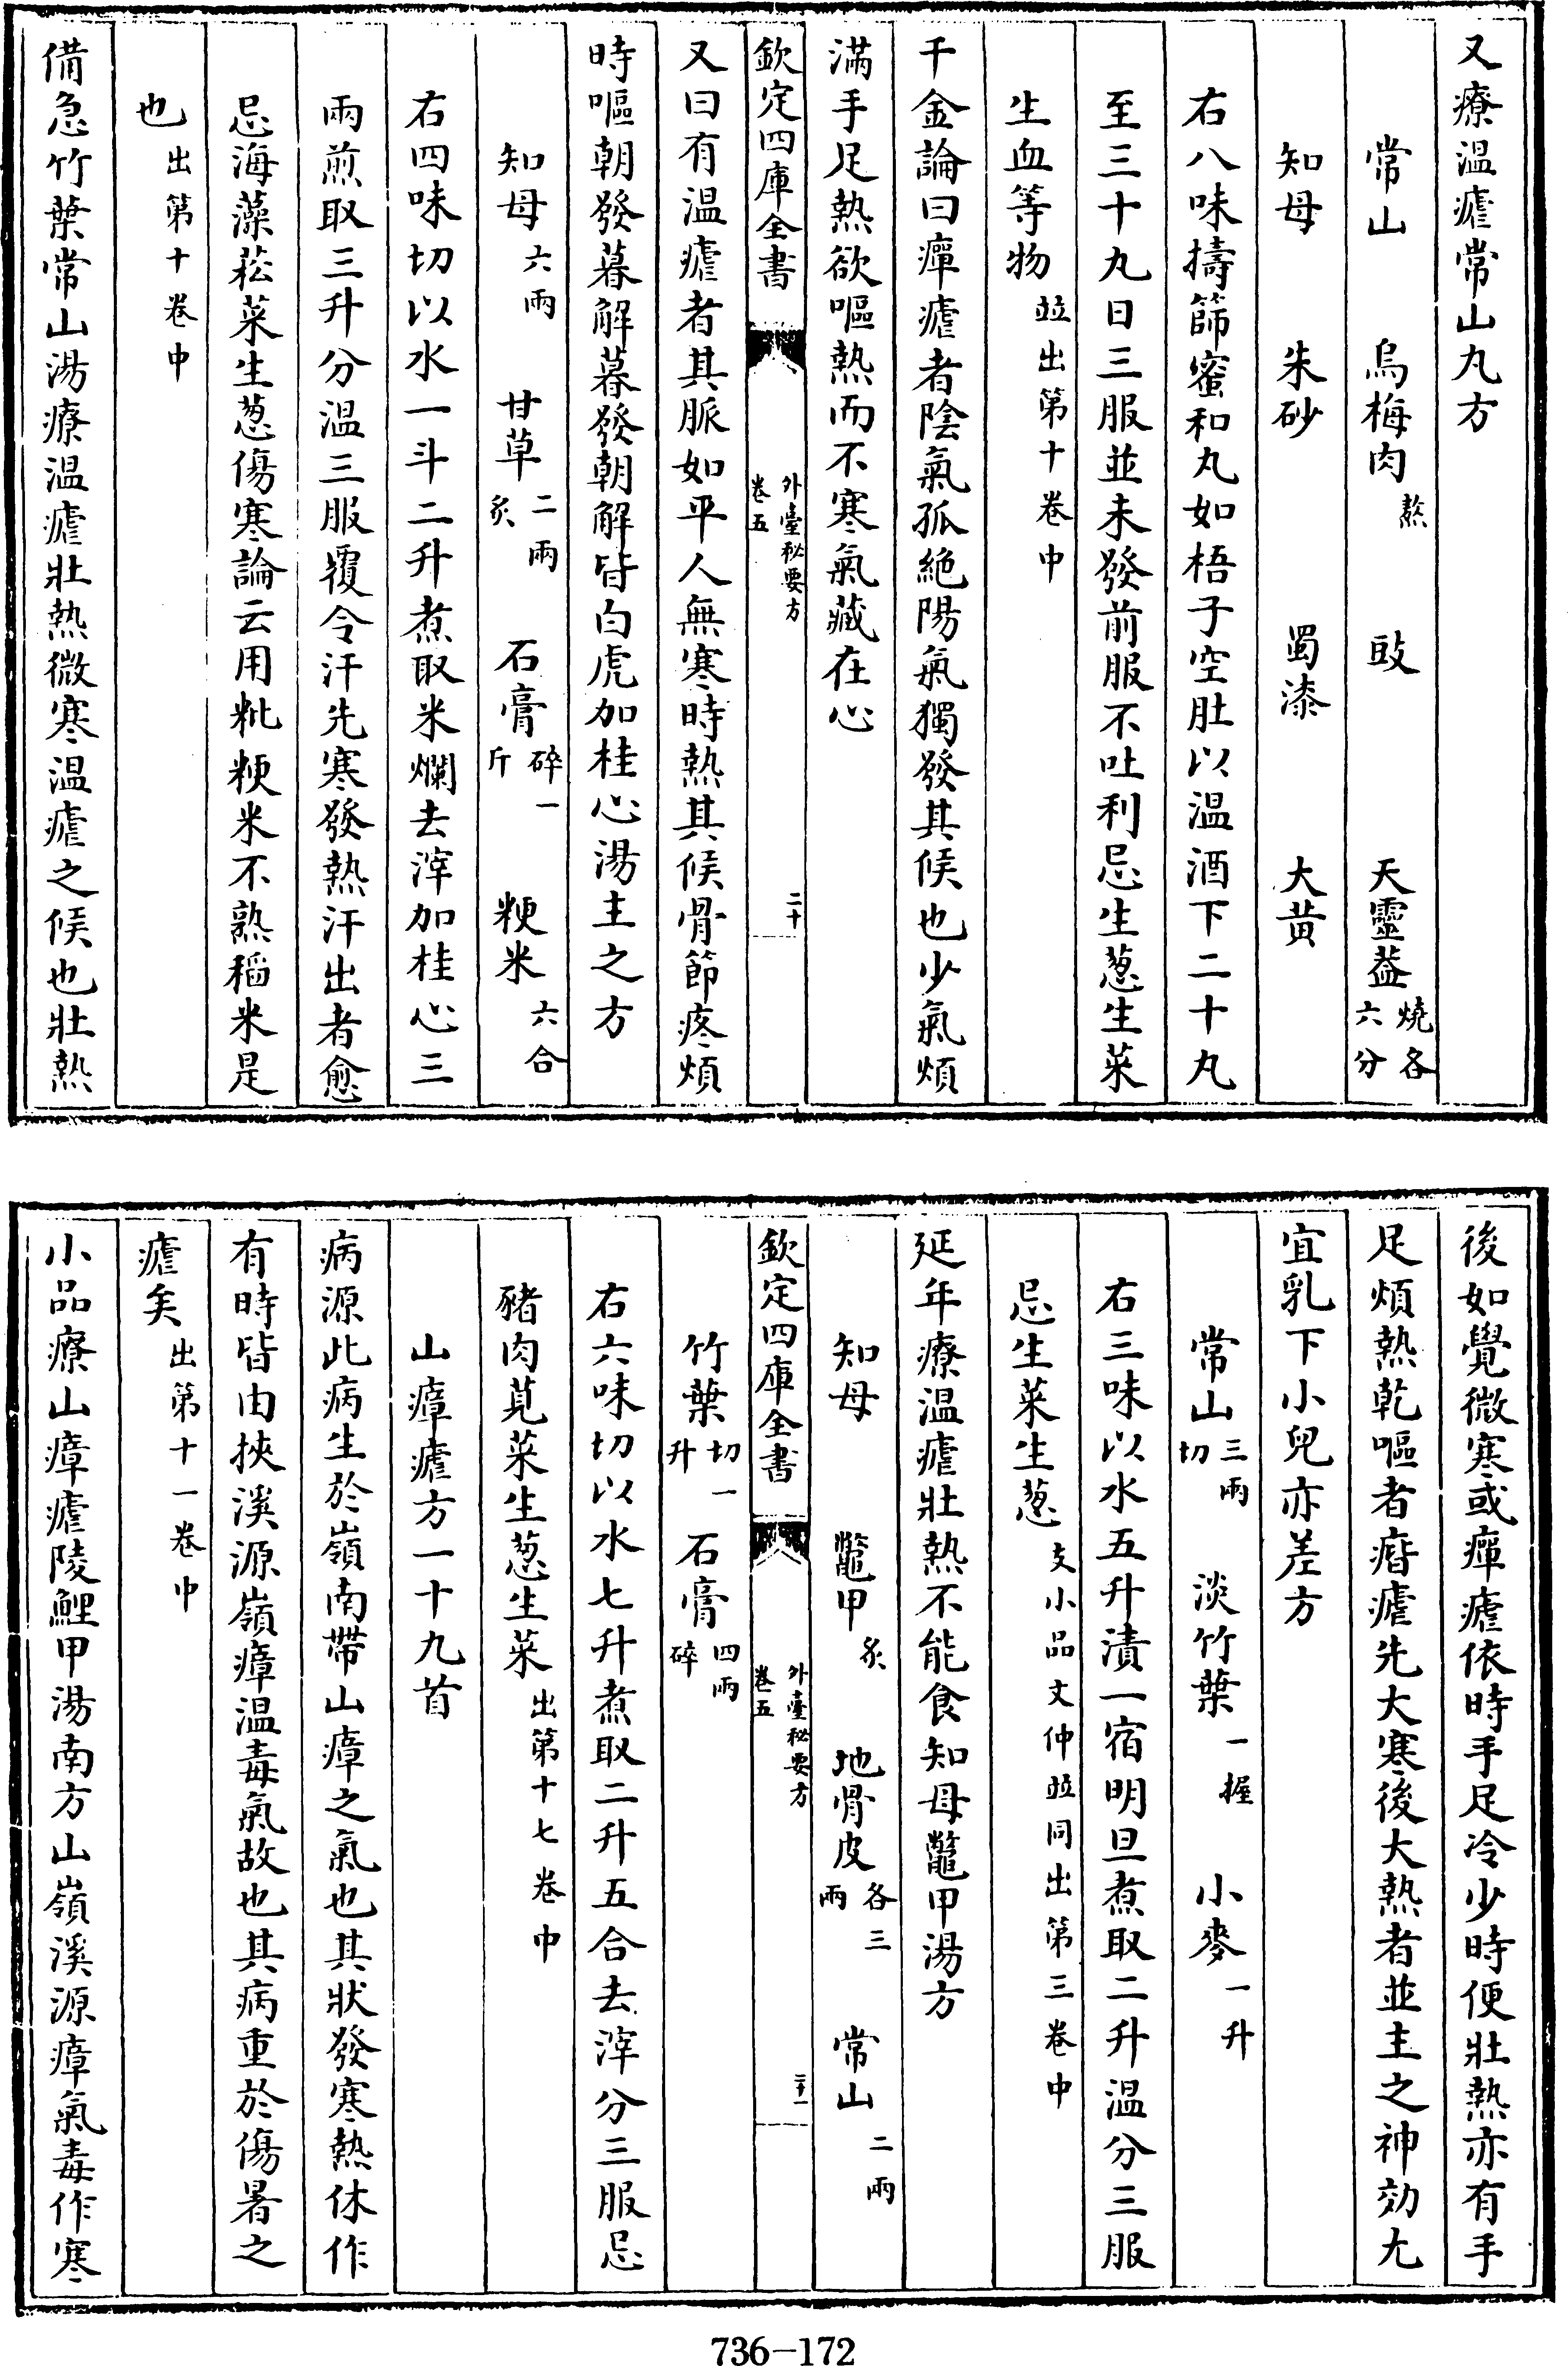 又療温瘧常山丸方
常山　烏梅肉熬　豉　天靈葢燒各六分
知母　朱砂　蜀漆　大黄
右八味擣篩蜜和丸如梧子空肚以温酒下二十丸
至三十丸日三服並未發前服不吐利忌生葱生菜
生血等物並出第十卷中
千金論曰癉瘧者陰氣孤絶陽氣獨發其候也少氣煩
滿手足熱欲嘔熱而不寒氣藏在心
欽定四庫全書　外臺秘要方卷五　二十
又曰有温瘧者其脈如平人無寒時熱其候骨節疼煩
時嘔朝發暮解暮發朝解皆白虎加桂心湯主之方
知母六兩　甘草二兩炙　石膏碎一斤　粳米六合
右四味切以水一斗二升煮取米爛去滓加桂心三
兩煎取三升分温三服覆令汗先寒發熱汗出者愈
忌海藻菘菜生葱傷寒論云用粃粳米不熟稻米是
也出第十卷中
備急竹葉常山湯療温瘧壯熱微寒温瘧之候也壯熱
後如覺微寒或癉瘧依時手足冷少時便壯熱亦有手
足煩熱乾嘔者痟瘧先大寒後大熱者並主之神効尢
宜乳下小兒亦差方
常山三兩切　淡竹葉一握　小麥一升
右三味以水五升漬一宿明旦煮取二升温分三服
忌生菜生葱支小品文仲並同出第三卷中
延年療温瘧壯熱不能食知母鼈甲湯方
知母　鼈甲炙　地骨皮各三兩　常山二兩
欽定四庫全書　外臺秘要方卷五　二十一
竹葉切一升　石膏四兩碎
右六味切以水七升煮取二升五合去滓分三服忌
豬肉莧菜生葱生菜出第十七卷中
山瘴瘧方一十九首
病源此病生於嶺南帶山瘴之氣也其狀發寒熱休作
有時皆由挾溪源嶺瘴温毒氣故也其病重於傷暑之
瘧矣出第十一卷中
小品療山瘴瘧陵鯉甲湯南方山嶺溪源瘴氣毒作寒
736-172